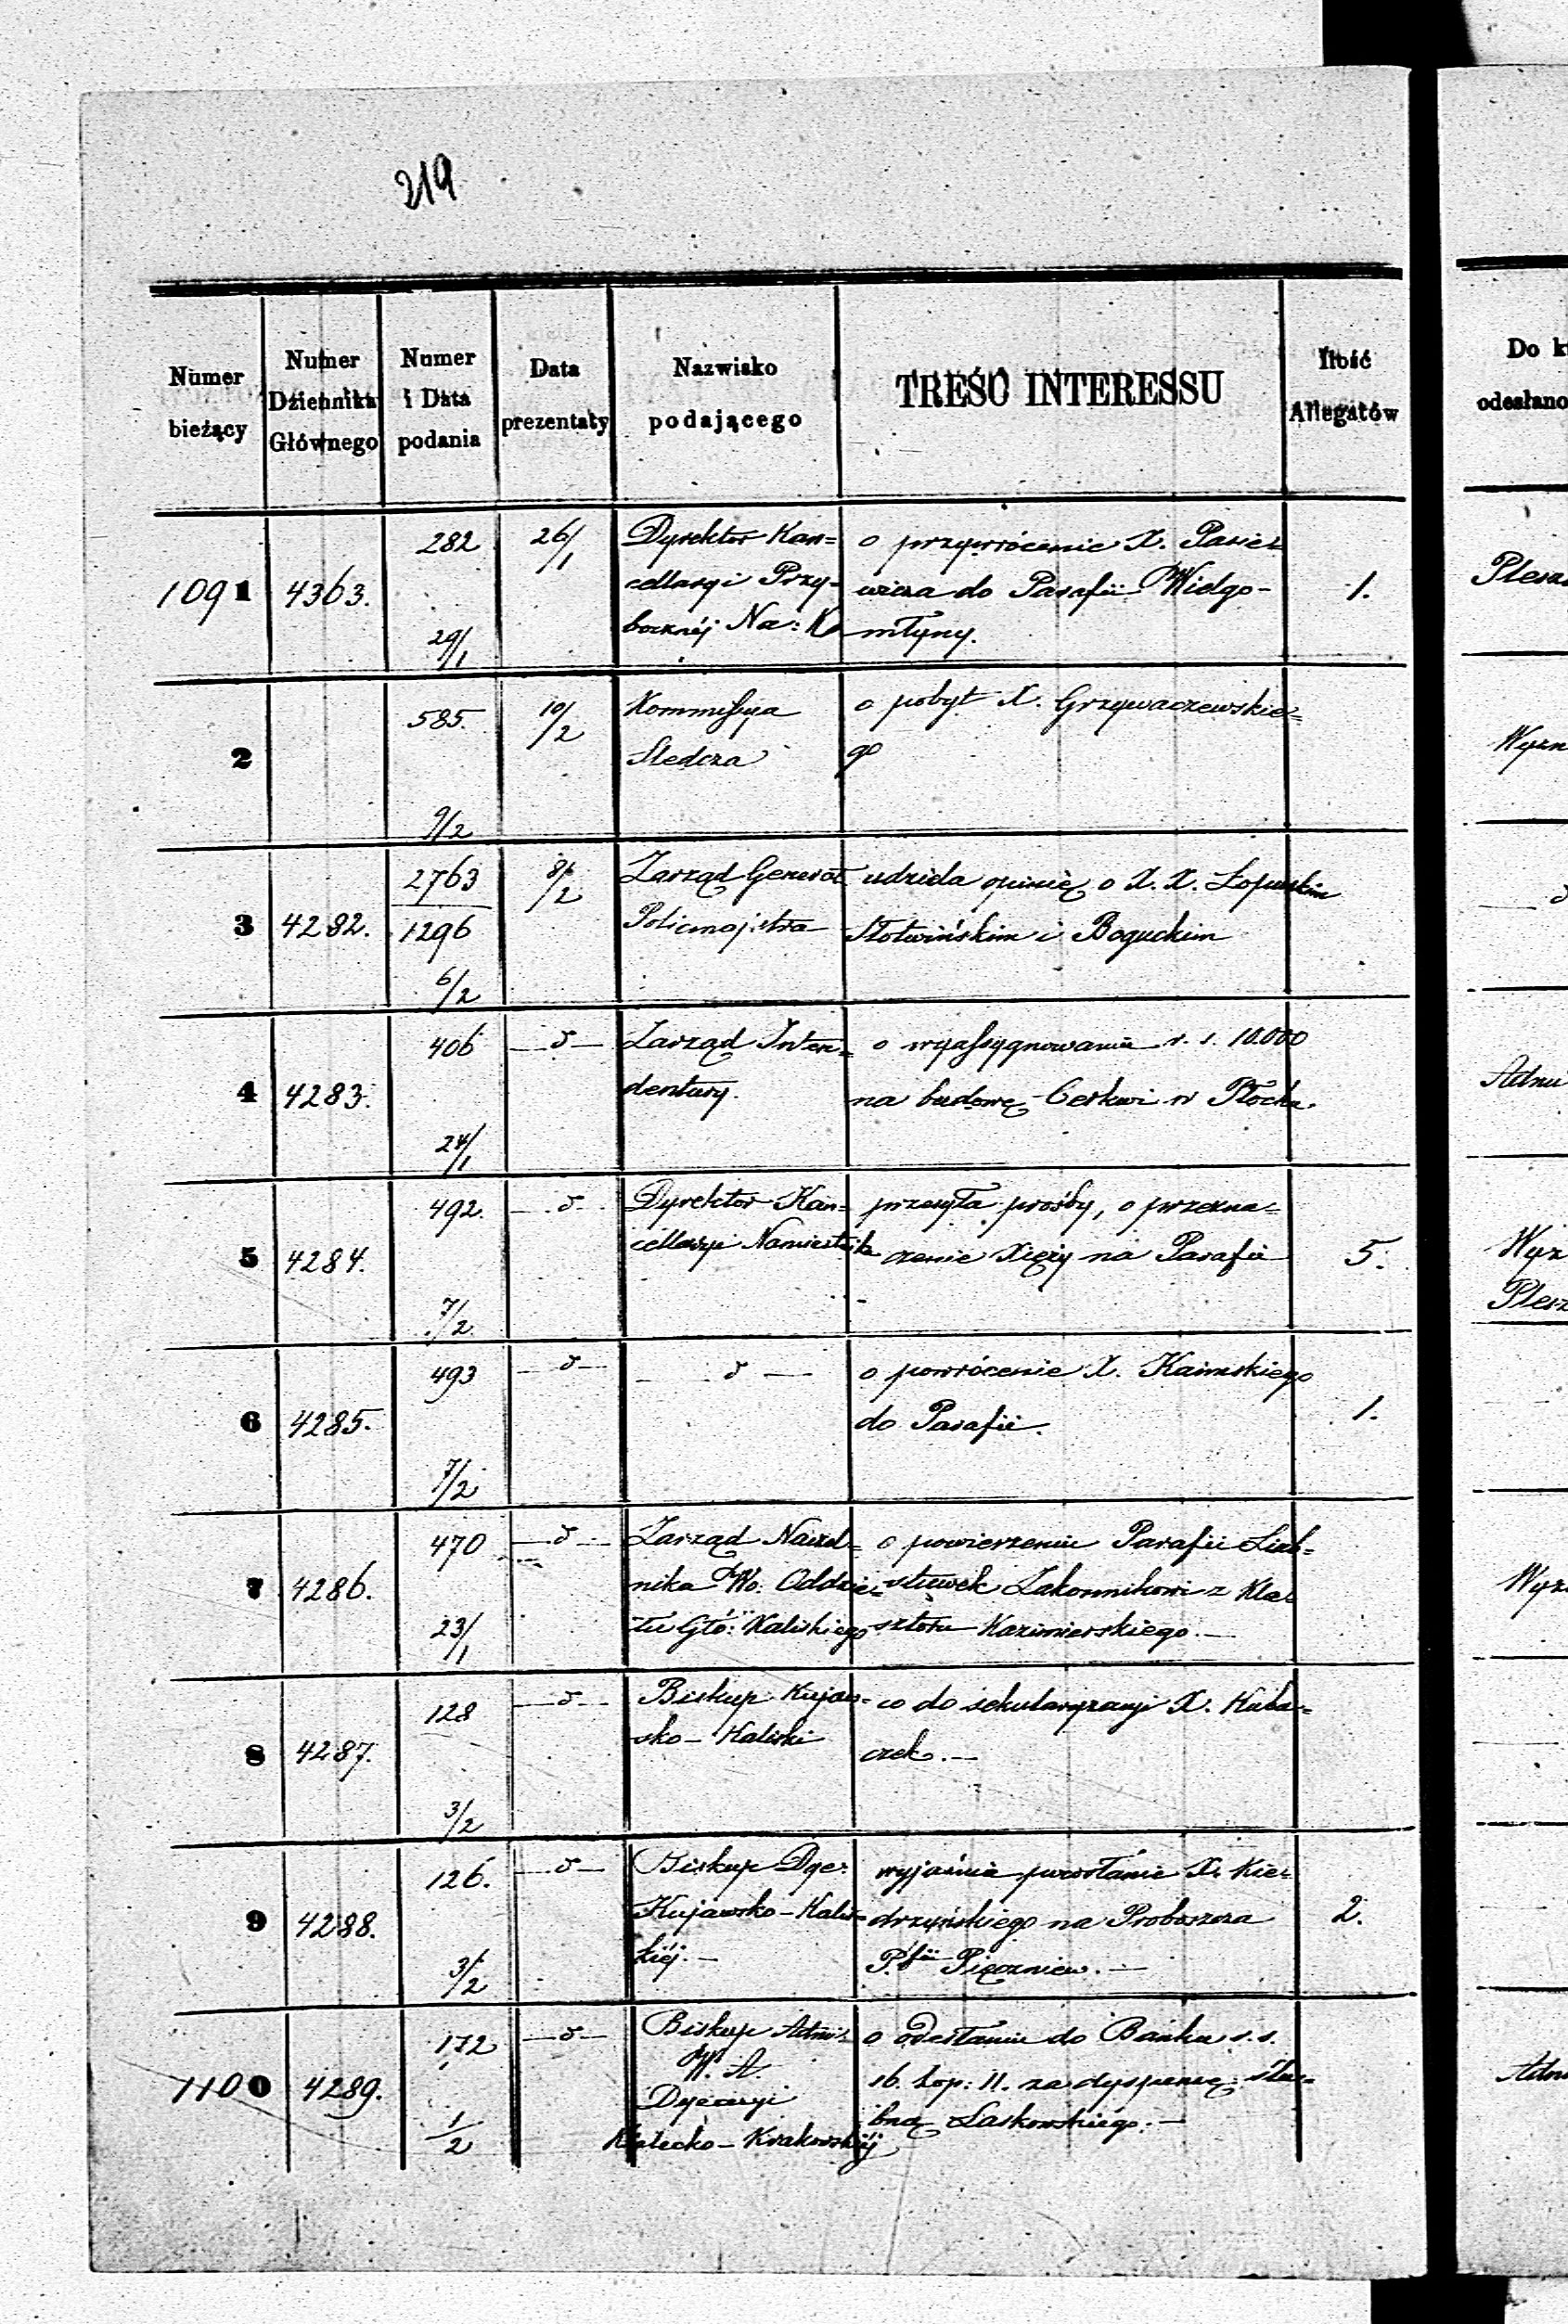 219
Numer bieżący
Numer Dziennika Głównego
Numer i Data podania
Data prezentaty
Nazwisko podającego
TREŚĆ INTERESSU
Ilość Allegatów
Do k
odesłano
1091 4363. 282 29/1 26/1
Dyrektor Kan=
cellaryi Przy=
bocznéj Na: K
o przywrócenie X.
wicza do Parafii Wielgo-
młyny.
1.
Plesz
2 585. 9/2 10/2
Kommissya
Sledcza
o pobyt X. Grzywaczewskie=
go
Wyzn
3 4282. 2763 1296 6/2 8/2
Zarząd Generał
Policmajstra
udziela opinię o X. X.
Słotwińskim i Boguckim
4 4283. 406 24/1 — d —
Zarząd Inten=
dentury.
o wyassygnowanie r. s. 10.000
na budowę Cerkwi w Płocku.
Adm
5 4284. 492. 7/2 — d —
Dyrektor Kan=
cellaryi Namiestnika
przesyła prośby, o przezna=
czenie Xięży na Parafie
5.
Wyz
Plesz
6 4285. 493 7/2 — d —
— d —
o powrócenie X. Kaimskiego
do Parafii.
1.
7 4286. 470 23/1 — d —
Zarząd Naczel=
nika Wo: Oddzia=
łu Głó: Kaliskiego
o powierzeniu Parafii Lub=
stówek Zakonnikowi z Kla=
sztoru Kazimierskiego. —
Wyz
8 4287. 128 3/2 — d —
Biskup Kujaw=
sko — Kaliski
co do sekularyzacyi X. Kuba=
czek. —
9 4288. 126. 3/2 — d —
Biskup Dye:
Kujawsko — Kalis=
kiéj. —
wyjaśnia powołanie X. Kie=
drzyńskiego na Proboszcza
P.fii Pięczniew. —
2.
1100 4289. 172 1/2 — d —
Biskup Adm:
W. A.
Dyecezyi
Kielecko — Krakowskiéj
o odesłaniu do Banku r. s.
16. kop: 11. za dyspensę ślu=
bną Laskowskiego. —
Adm